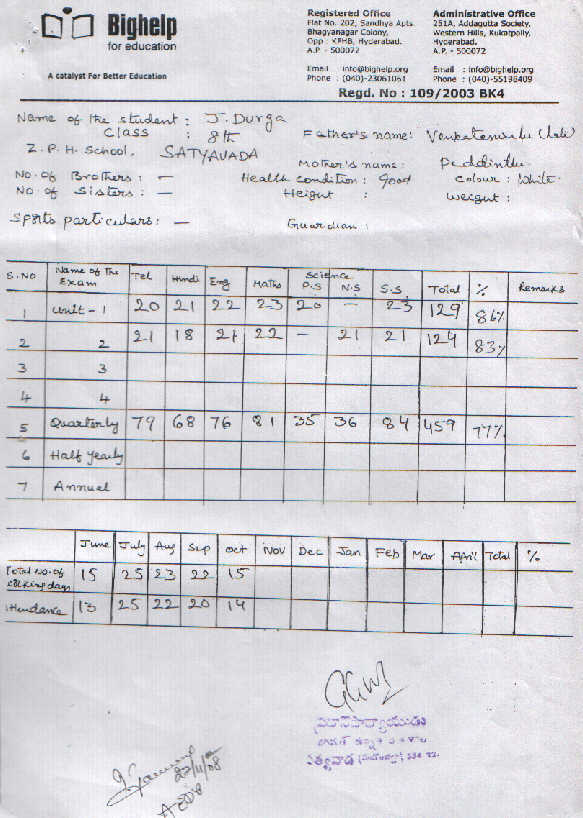 Bighelp
for education
A catalyst For Better Education
Registered Office
Flat No. 202, Sandhya Apts.
Bhagyanagar Colony,
Opp : KPHB, Hyderabad.
A.P. - 500072
Email : info@bighelp.org
Phone : (040)-23061061
Administrative Office
251A, Addagutta Society,
Western Hills, Kukatpally,
Hyderabad.
A.P. - 500072
Email : info@bighelp.org
Phone : (040)-55198409
Regd. No : 109/2003 BK4
Name of the student : J. Durga
Class : 8th
Father's name: Venkateswarlu (late)
Z.P.H. School, SATYAVADA
Mother's name: Peddintlu
No. of Brothers : —
Health condition : Good
Colour : White
No. of Sisters : —
Height :
Weight :
Sports particulars: —
Guardian :
S.No Name of the Exam Tel Hindi Eng Maths Science P.S N.S S.S Total % Remarks
1 Unit - 1 20 21 22 23 20 — 23 129 86%
2 2 21 18 21 22 — 21 21 124 83%
3 3
4 4
5 Quarterly 79 68 76 81 35 36 84 459 77%
6 Half yearly
7 Annual
June July Aug Sep Oct Nov Dec Jan Feb Mar April Total %
Total No. of working days 15 25 23 22 15
Attendance 13 25 22 20 14